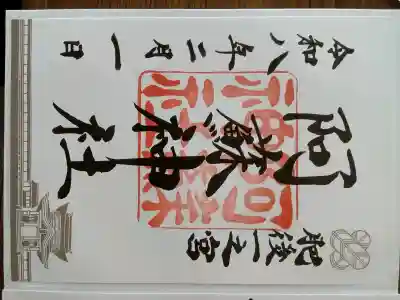 肥後一之宮
阿蘇神社
令和八年二月一日